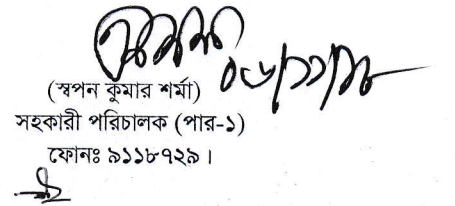 ০৬/১১/১৮
(স্বপন কুমার শর্মা)
সহকারী পরিচালক (পার-১)
ফোনঃ ৯১১৮৭২৯।